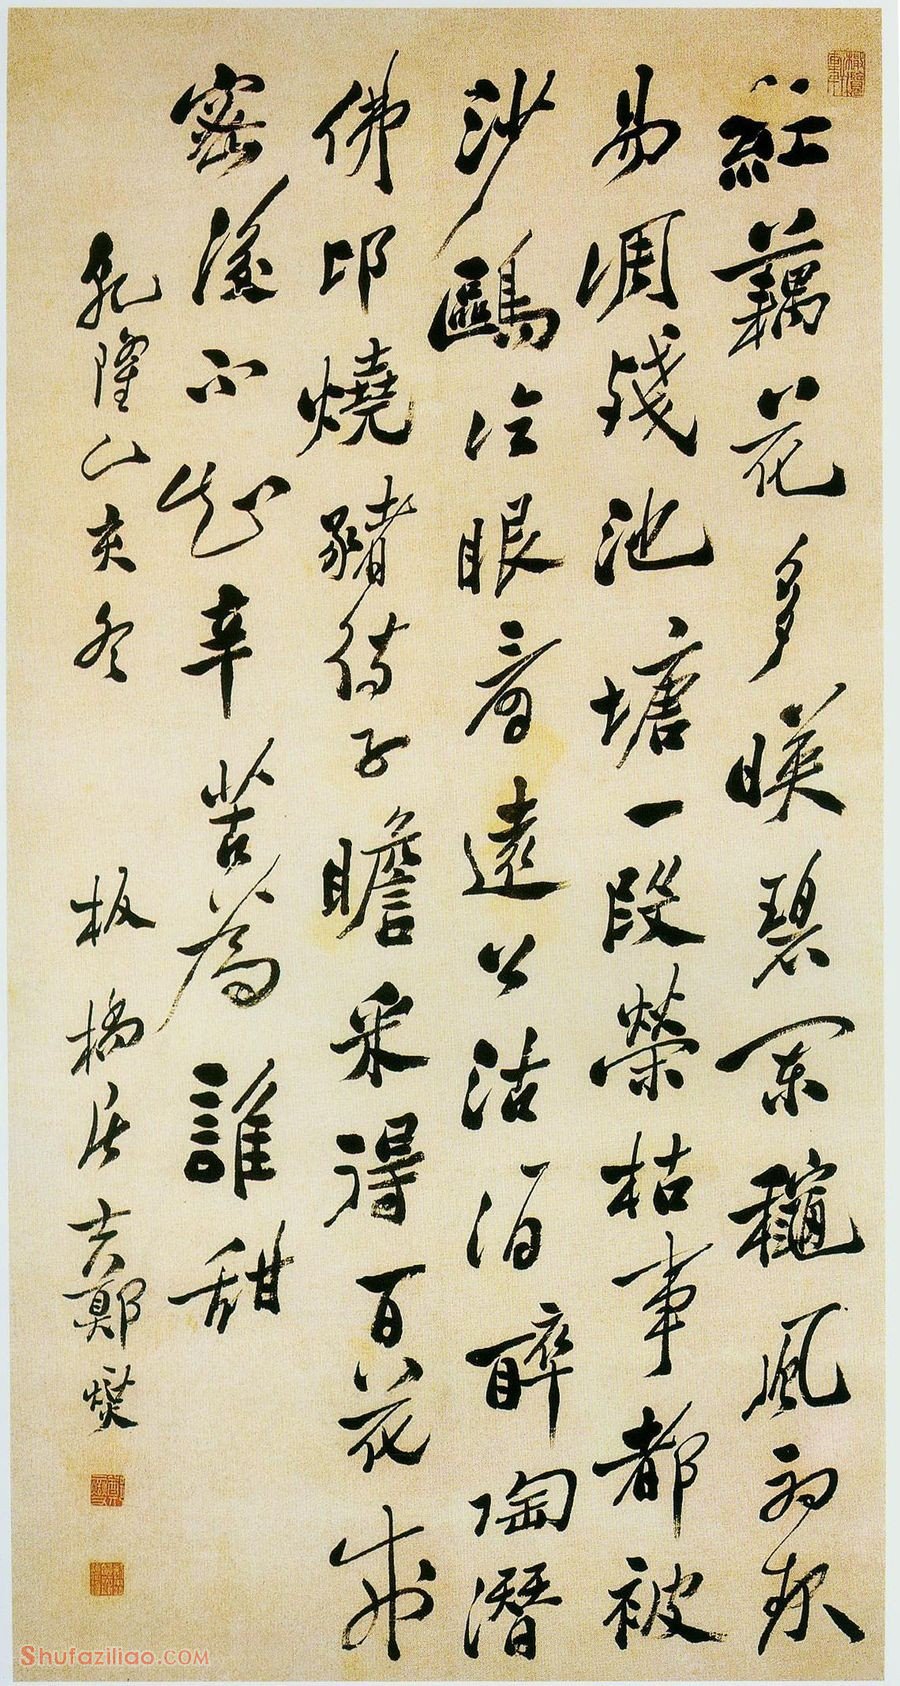 紅藕花多暎碧闌穐風初
易凋殘池塘一段榮枯事都被
沙鷗冷眼看遠公沽酒醉陶潛
佛印燒豬待子瞻采得百花成
蜜後不知辛苦為誰甜
乾隆乙亥冬 板橋居士鄭燮
Shufaziliao.COM